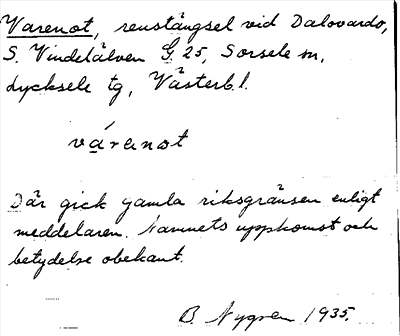 Varenot, renstängsel vid Dalovardo,
S. Vindelälven G. 25, Sorsele sn,
Lycksele tg, Västerb. l.
várenot
Där gick gamla riksgränsen enligt
meddelaren. Namnets uppkomst och
betydelse obekant.
B. Nygren 1935.